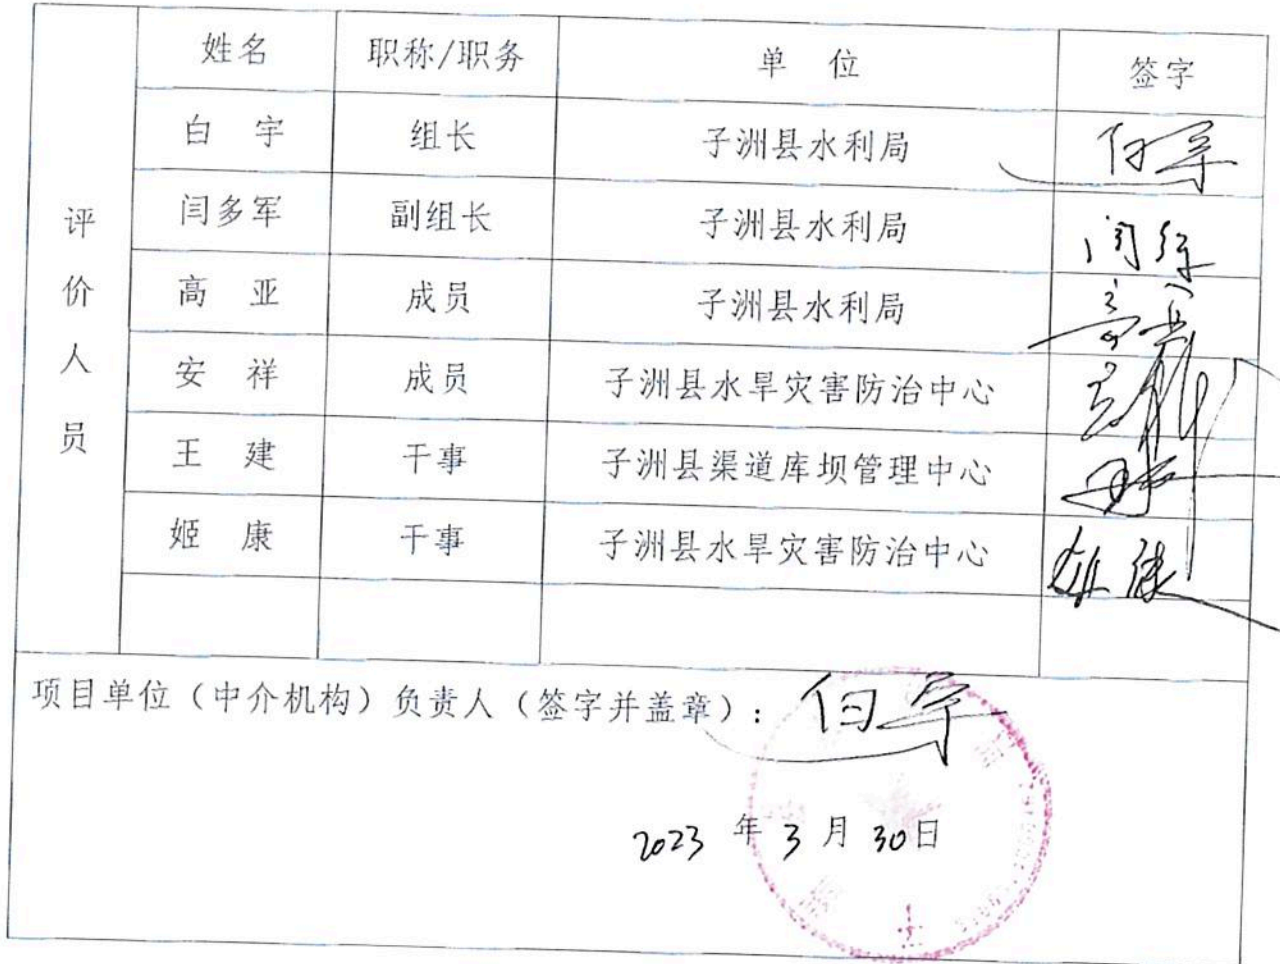 姓名 职称/职务 单 位 签字
白 宇 组长 子洲县水利局 白宇
闫多军 副组长 子洲县水利局
高 亚 成员 子洲县水利局
安 祥 成员 子洲县水旱灾害防治中心
王 建 干事 子洲县渠道库坝管理中心
姬 康 干事 子洲县水旱灾害防治中心 姬康
评价人员
项目单位（中介机构）负责人（签字并盖章）： 白宇
2023 年 3 月 30日